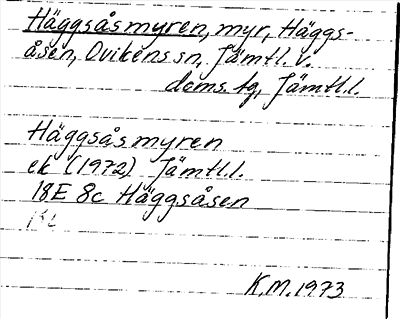 Häggsåsmyren, myr, Häggs-
åsen, Ovikens sn, Jämtl. v.
doms. tg, Jämtl.l.
Häggsåsmyren
ek (1972) Jämtl.l.
18E 8c Häggsåsen
K.M. 1973